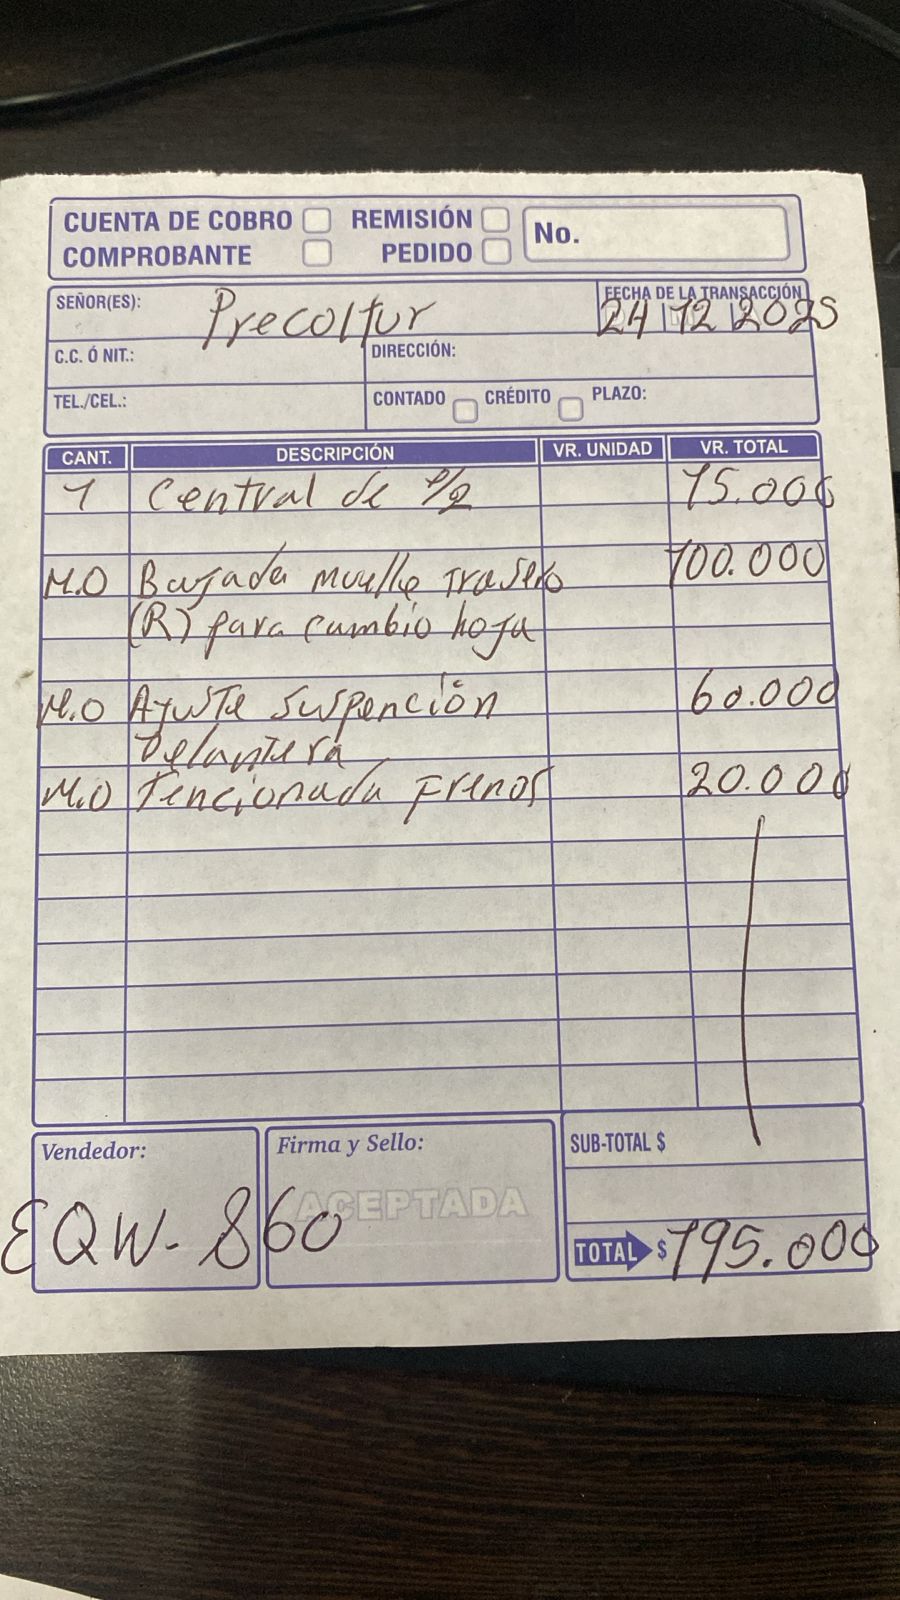 CUENTA DE COBRO REMISIÓN No.
COMPROBANTE PEDIDO
SEÑOR(ES): Precoltur FECHA DE LA TRANSACCIÓN
24 12 2025
C.C. Ó NIT.: DIRECCIÓN:
TEL./CEL.: CONTADO CRÉDITO PLAZO:
CANT. DESCRIPCIÓN VR. UNIDAD VR. TOTAL
1 Central de 1/2 15.000
M.O Bajada muelle trasero 100.000
(R) para cambio hoja
M.O Ajuste suspención 60.000
Delantera
M.O Tencionada Frenos 20.000
Vendedor: Firma y Sello: SUB-TOTAL $
ACEPTADA
EQW-860
TOTAL $ 195.000